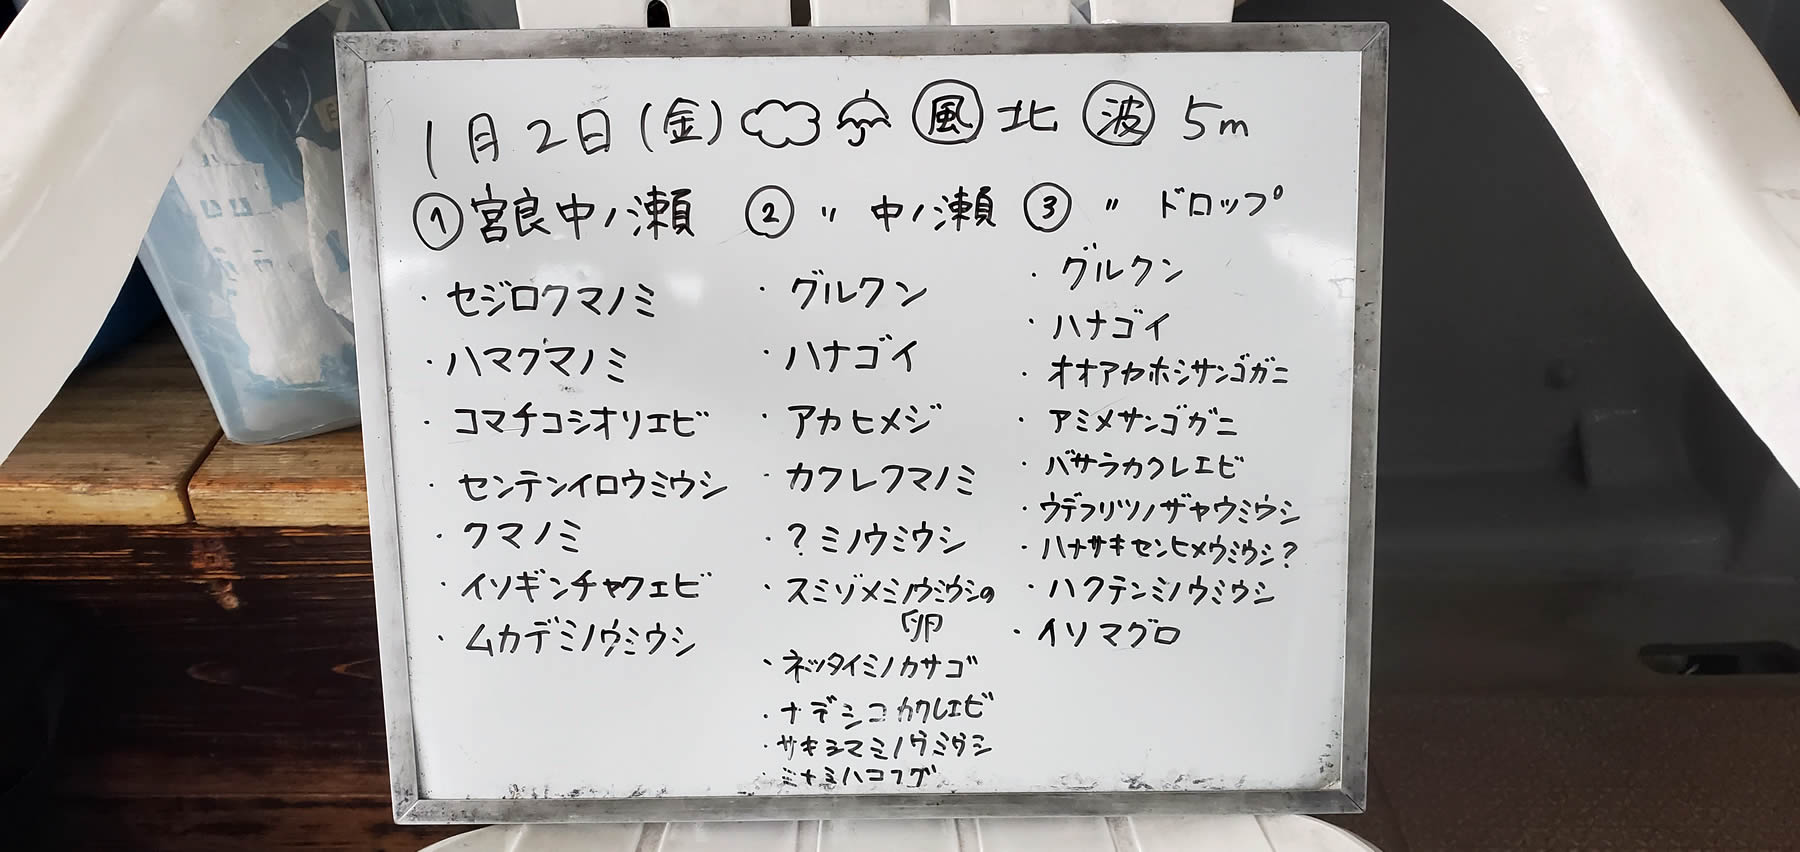 1月2日(金) 風 北 波 5m
① 宮良中ノ瀬
・セジロクマノミ
・ハマクマノミ
・コマチコシオリエビ
・センテンイロウミウシ
・クマノミ
・イソギンチャクエビ
・ムカデミノウミウシ
② 〃 中ノ瀬
・グルクン
・ハナゴイ
・アカヒメジ
・カクレクマノミ
・?ミノウミウシ
・スミゾメミノウミウシの
卵
・ネッタイミノカサゴ
・ナデシコカクレエビ
・サキシマミノウミウシ
・ミナミハコフグ
③ 〃 ドロップ
・グルクン
・ハナゴイ
・オオアカホシサンゴガニ
・アミメサンゴガニ
・バサラカクレエビ
・ウデフリツノザヤウミウシ
・ハナサキセンヒメウミウシ?
・ハクテンミノウミウシ
・イソマグロ